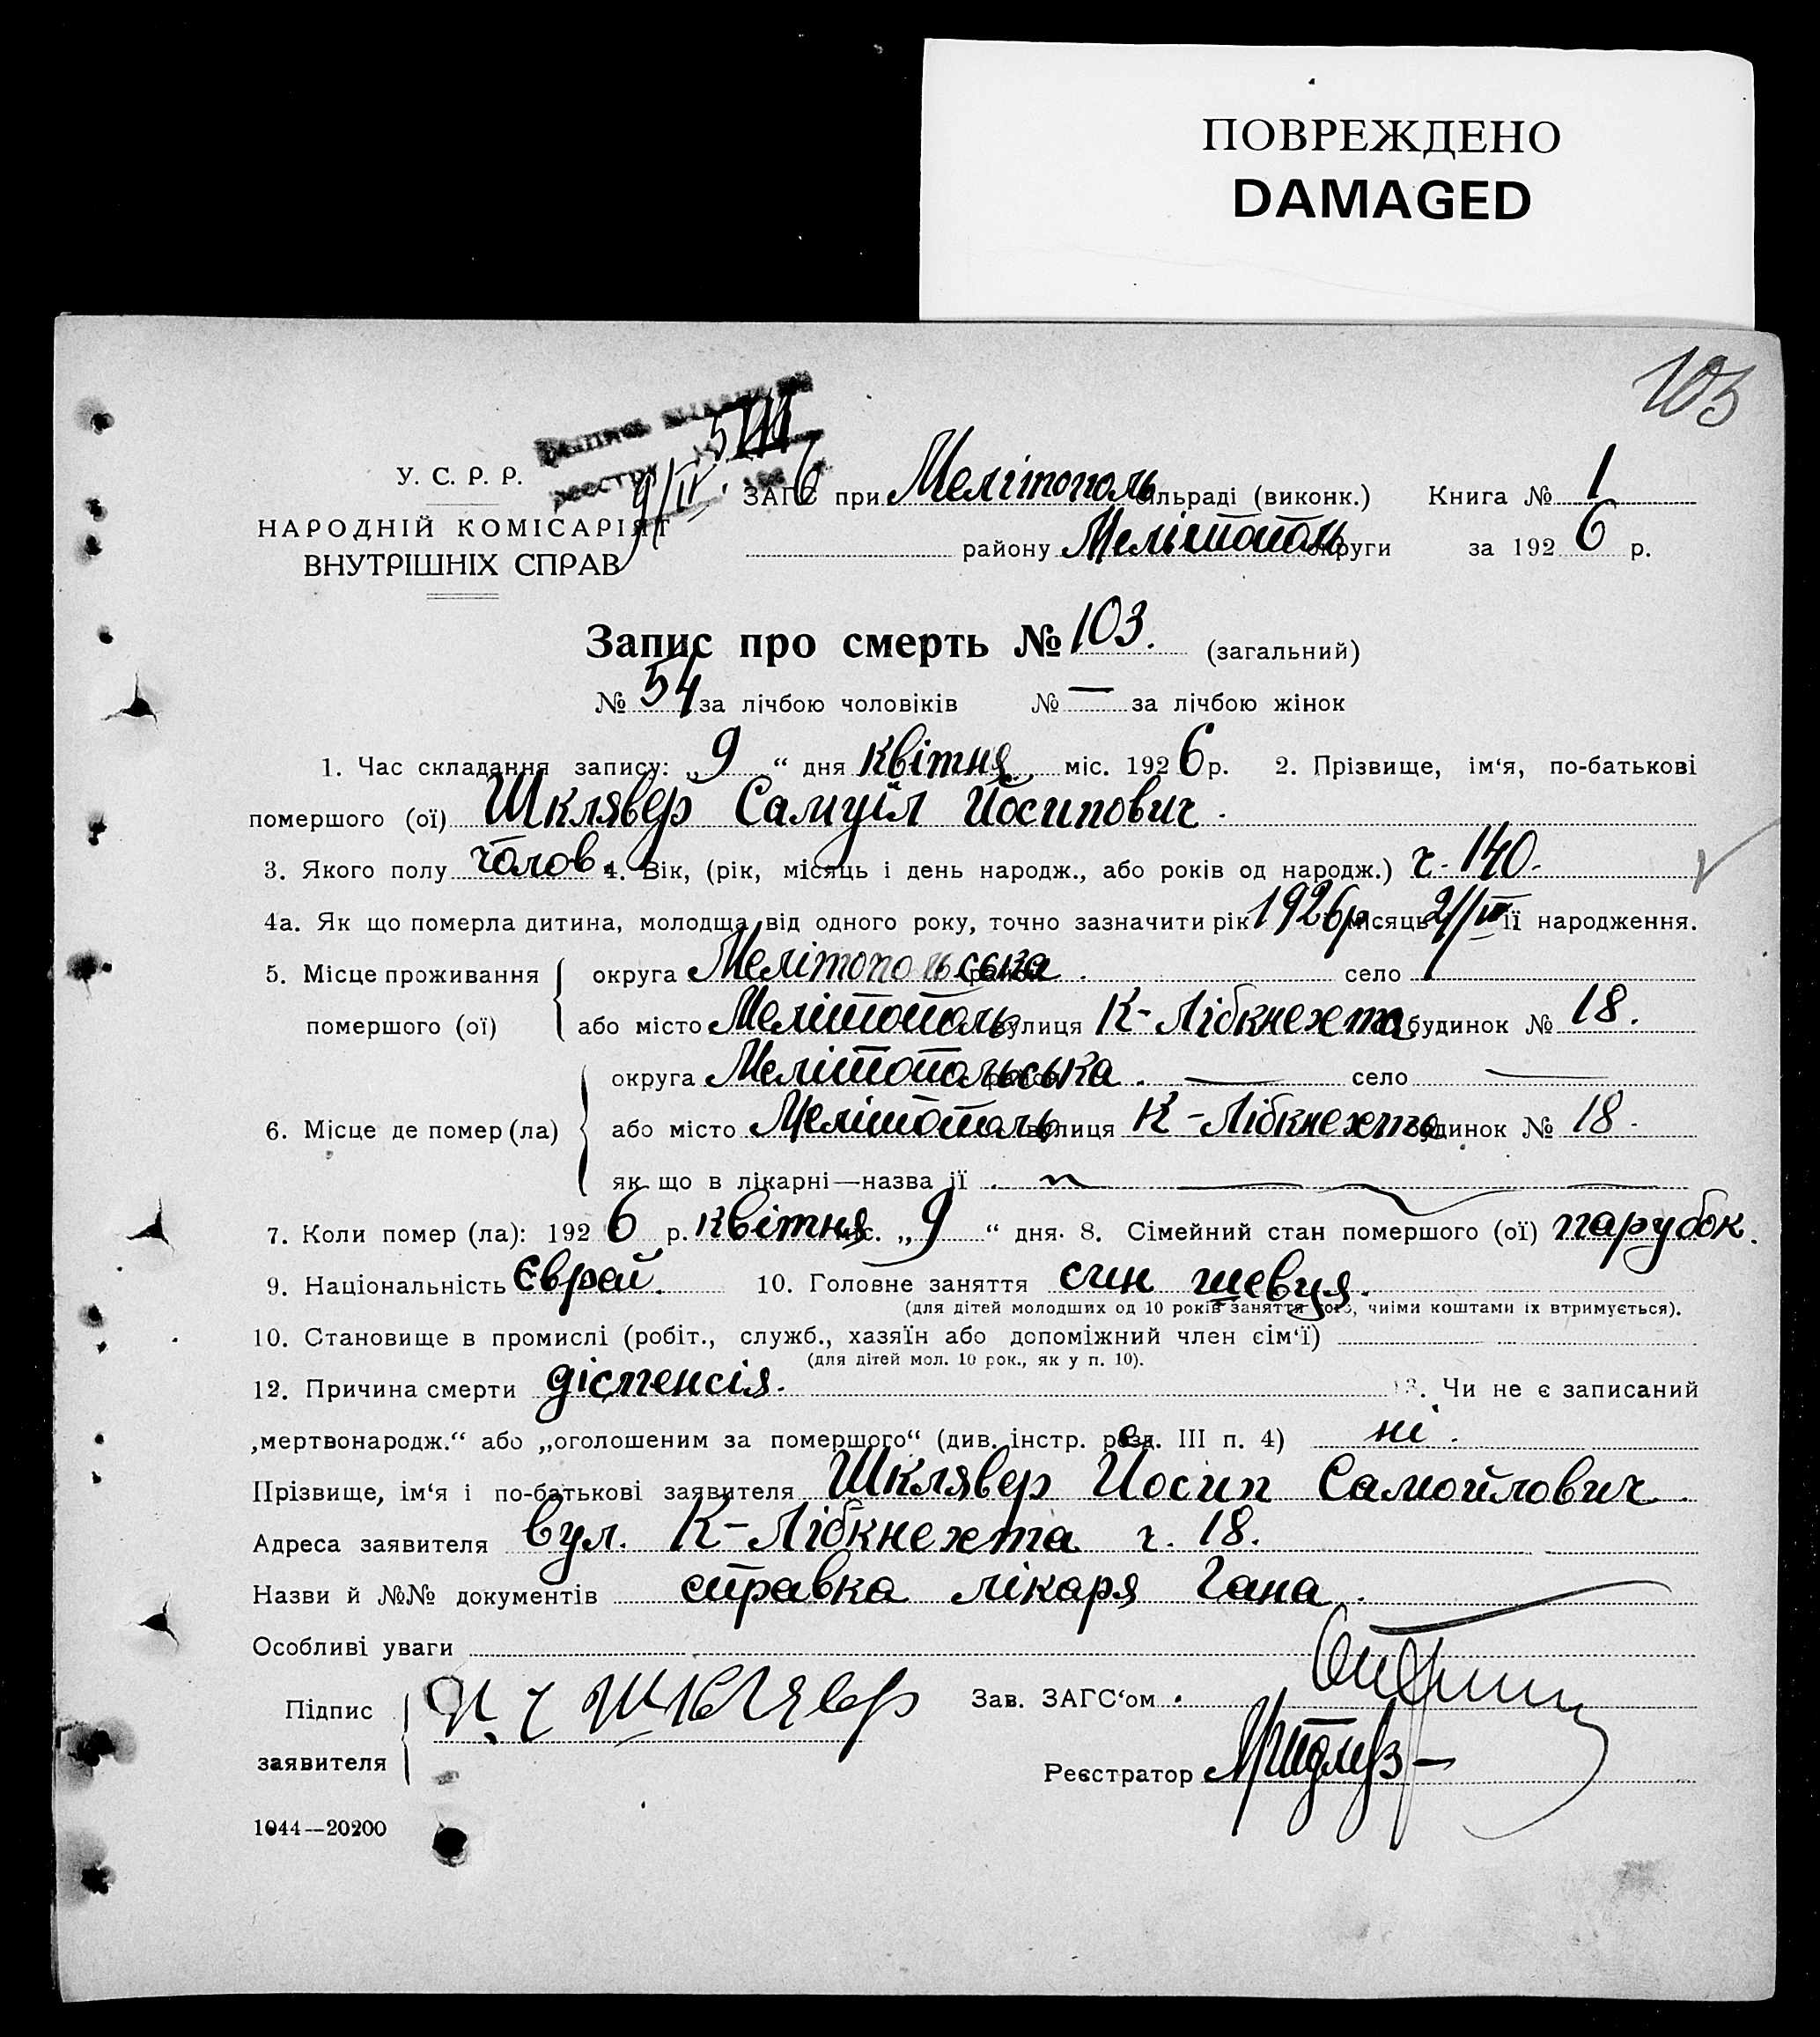 ПОВРЕЖДЕНО
DAMAGED
103
У. С. Р. Р.
НАРОДНІЙ КОМІСАРІЯТ
ВНУТРІШНІХ СПРАВ
9/IV.
ЗАГС при Мелітополь сільраді (виконк.) Книга № 1
району Мелітополь округи за 1926 р.
Запис про смерть № 103. (загальний)
№ 54 за лічбою чоловіків № — за лічбою жінок
1. Час складання запису: „9“ дня квітня міс. 1926 р. 2. Прізвище, ім‘я, по-батькові
помершого (ої) Шклявер Самуїл Йосипович.
3. Якого полу чолов. 4. Вік, (рік, місяць і день народж., або років од народж.) ч. 140.
4а. Як що померла дитина, молодща від одного року, точно зазначити рік 1926 р. місяць 21/III її народження.
5. Місце проживання округа Мелітопольська район . село
помершого (ої) або місто Мелітополь вулиця К-Лібкнехта будинок № 18.
округа Мелітопольська район . — село —
6. Місце де помер (ла) або місто Мелітополь вулиця К-Лібкнехта будинок № 18.
як що в лікарні—назва її
7. Коли помер (ла): 1926 р. квітня міс. „9“ дня. 8. Сімейний стан помершого (ої) парубок.
9. Національність Єврей. 10. Головне заняття син шевця.
(для дітей молодших од 10 років заняття того, чиїми коштами їх втримується).
10. Становище в промислі (робіт., служб., хазяїн або допоміжний член сім‘ї)
(для дітей мол. 10 рок., як у п. 10).
12. Причина смерти діспенсія. 13. Чи не є записаний
„мертвонародж.“ або „оголошеним за помершого“ (див. інстр. розд. III п. 4) ні.
Прізвище, ім‘я і по-батькові заявителя Шклявер Йосип Самойлович.
Адреса заявителя вул. К-Лібкнехта ч. 18.
Назви й №№ документів справка лікаря Гана.
Особливі уваги
Підпис Шклявер Зав. ЗАГС‘ом
заявителя Реєстратор
1044—20200